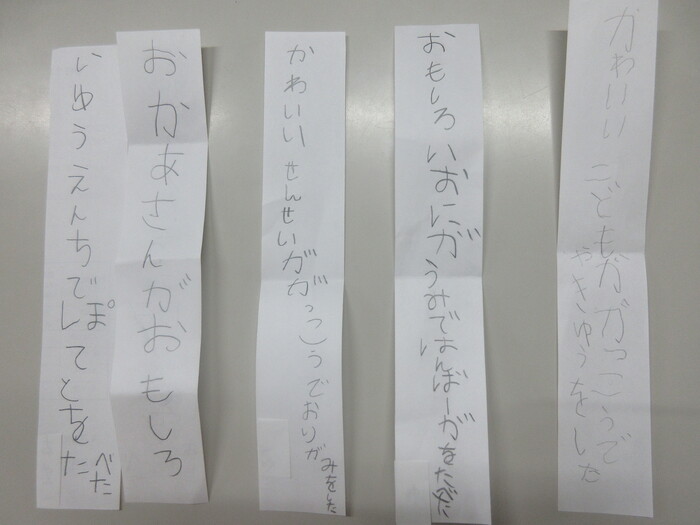 かわいい こどもが がっこうで
やきゅうをした
おもしろいおにがうみではんばーがをたべた
かわいいせんせいががっこうでおりがみをした
おかあさんがおもしろ
いゆうえんちでぽてとを
たべた